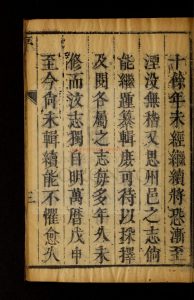 十餘年未經繼續將恐漸至
湮没無稽又思州邑之志倘
能繼踵纂輯庶可待以採擇
及問各屬之志每多年久未
修而汶志獨自明萬曆戊申
至今尚未輯續能不懼愈久